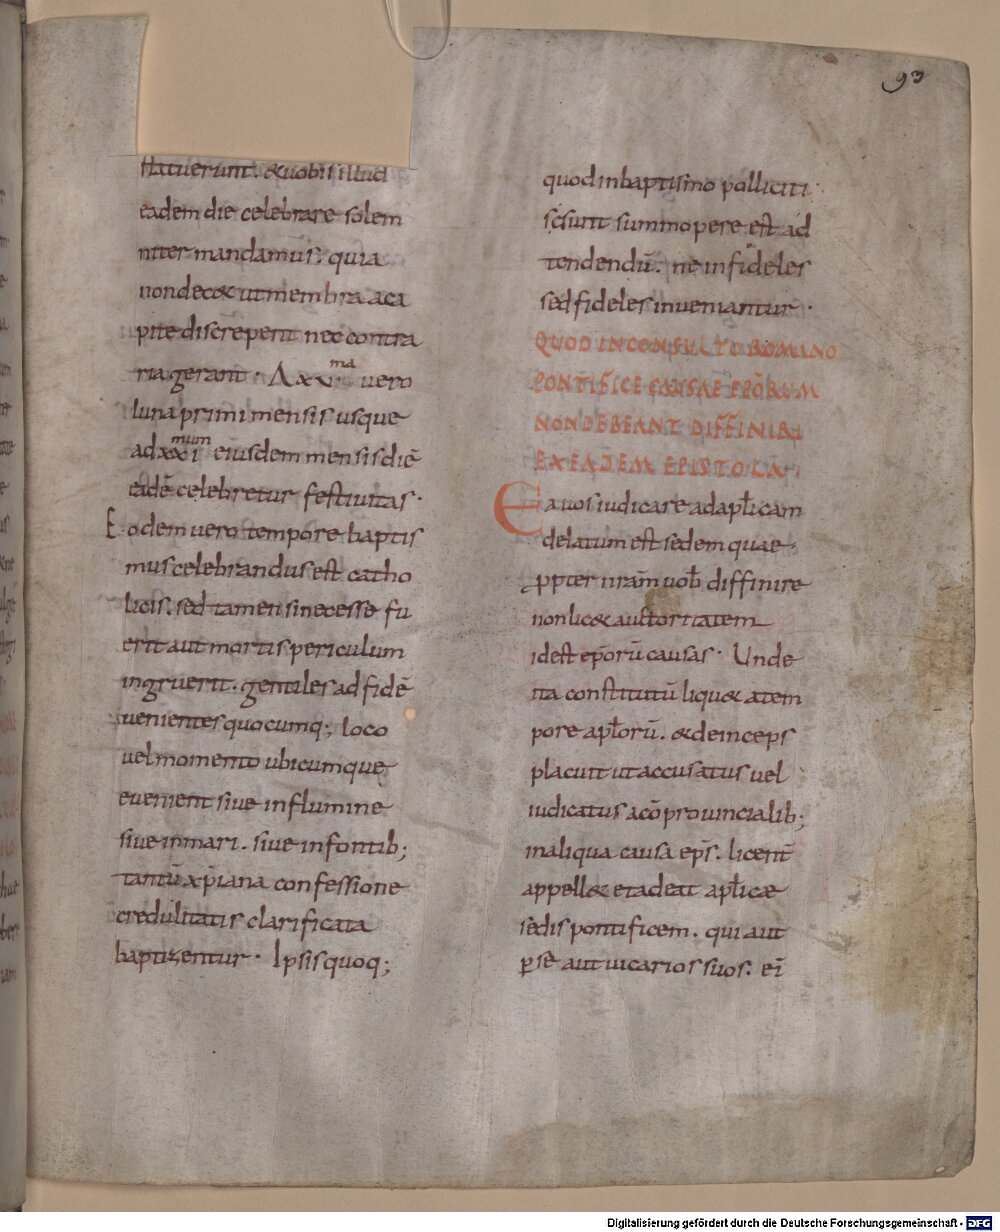 93
statuerunt. & uobis illud
eadem die celebrare solem
niter mandamus. quia
non dec& ut membra a ca
pite discrepent nec contra
ria gerant. A xxı.ma uero
luna primi mensis usque
ad xxımum eiusdem mensis diē
eadē celebretur festiuitas.
Eodem uero tempore baptis
mus celebrandus est catho
licis. sed tamen si necesse fu
erit aut mortis periculum
ingruerit. gentiles ad fidē
uenientes quocumq; loco
uel momento ubicumque
euenient siue in flumine
siue in mari. siue in fontib;
tantū xp̄iana confessione
credulitatis clarificata
baptizentur. Ipsis quoq;
quod in baptismo polliciti
s̄c̄i sunt summopere est ad
tendendū. ne infideles
sed fideles inueniantur.
QUOD INCONSULTO ROMANO
PONTIFICE CAUSAE EPŌRUM
NON DEBEANT DIFFINIRI
EX EADEM EPISTOLA
Ea uos iudicare ad apl̄icam
delatum est sedem quae
ꝓpter nr̄am uob̄ diffinire
non lic& auctoritatem
id est ep̄orū causas. Unde
ita constitutū liqu& a tem
pore apl̄orū. & deinceps
placuit ut accusatus uel
iudicatus a cō prouincialib;
in aliqua causa ep̄s. licent̄
appell& et adeat apl̄icae
sedis pontificem. qui aut
ꝑ se aut uicarios suos. eī
Digitalisierung gefördert durch die Deutsche Forschungsgemeinschaft - DFG